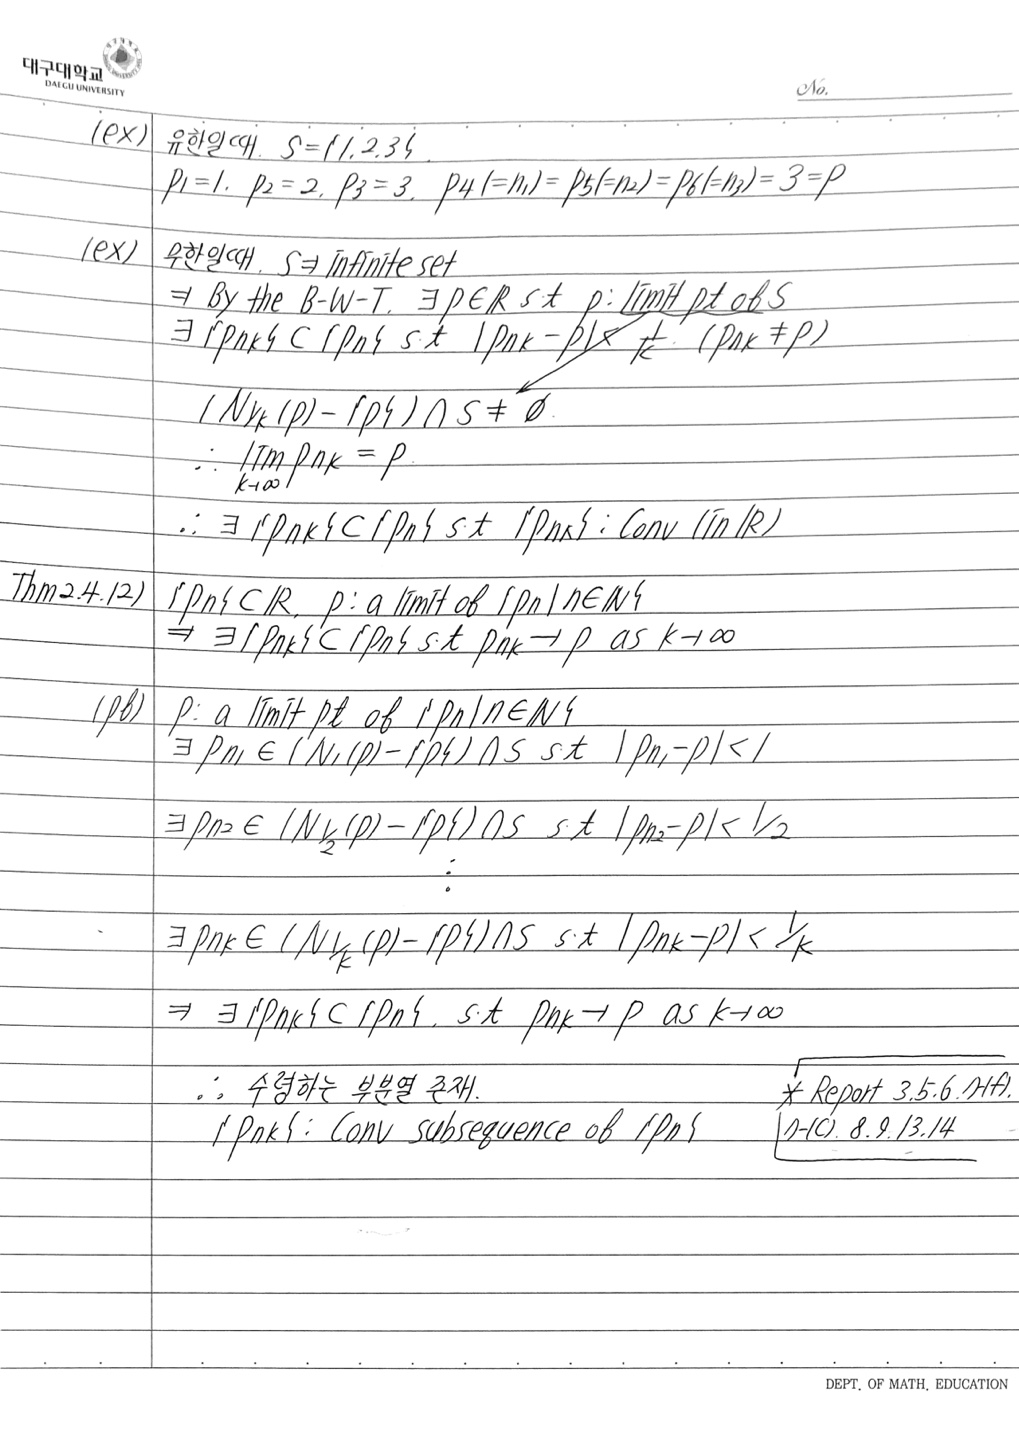 대구대학교
DAEGU UNIVERSITY
No.
(ex) 유한일 때. S={1,2,3}.
p₁=1. p₂=2. p₃=3. p₄(=n₁)=p₅(=n₂)=p₆(=n₃)=3=p
(ex) 무한일 때. S⇒infinite set
⇒ By the B-W-T. ∃p∈ℝ s.t p: limit pt of S
∃{pnₖ}⊂{pn} s.t |pnₖ-p|< 1/k. (pnₖ≠p)
(N1/k(p)-{p})∩S≠∅.
∴ lim pnₖ = p.
k→∞
∴ ∃{pnₖ}⊂{pn} s.t {pnₖ}: Conv (in ℝ)
Thm2.4.12) {pn}⊂ℝ. p: a limit of {pn|n∈ℕ}
⇒ ∃{pnₖ}⊂{pn} s.t pnₖ→p as k→∞
(pb) p: a limit pt of {pn|n∈ℕ}
∃pn₁∈(N₁(p)-{p})∩S s.t |pn₁-p|<1
∃pn₂∈(N1/2(p)-{p})∩S s.t |pn₂-p|<1/2
⋮
∃pnₖ∈(N1/k(p)-{p})∩S s.t |pnₖ-p|<1/k
⇒ ∃{pnₖ}⊂{pn}. s.t pnₖ→p as k→∞
∴ 수렴하는 부분열 존재.
{pnₖ}: Conv subsequence of {pn}
* Report 3.5.6.
8.9.13.14
DEPT. OF MATH. EDUCATION